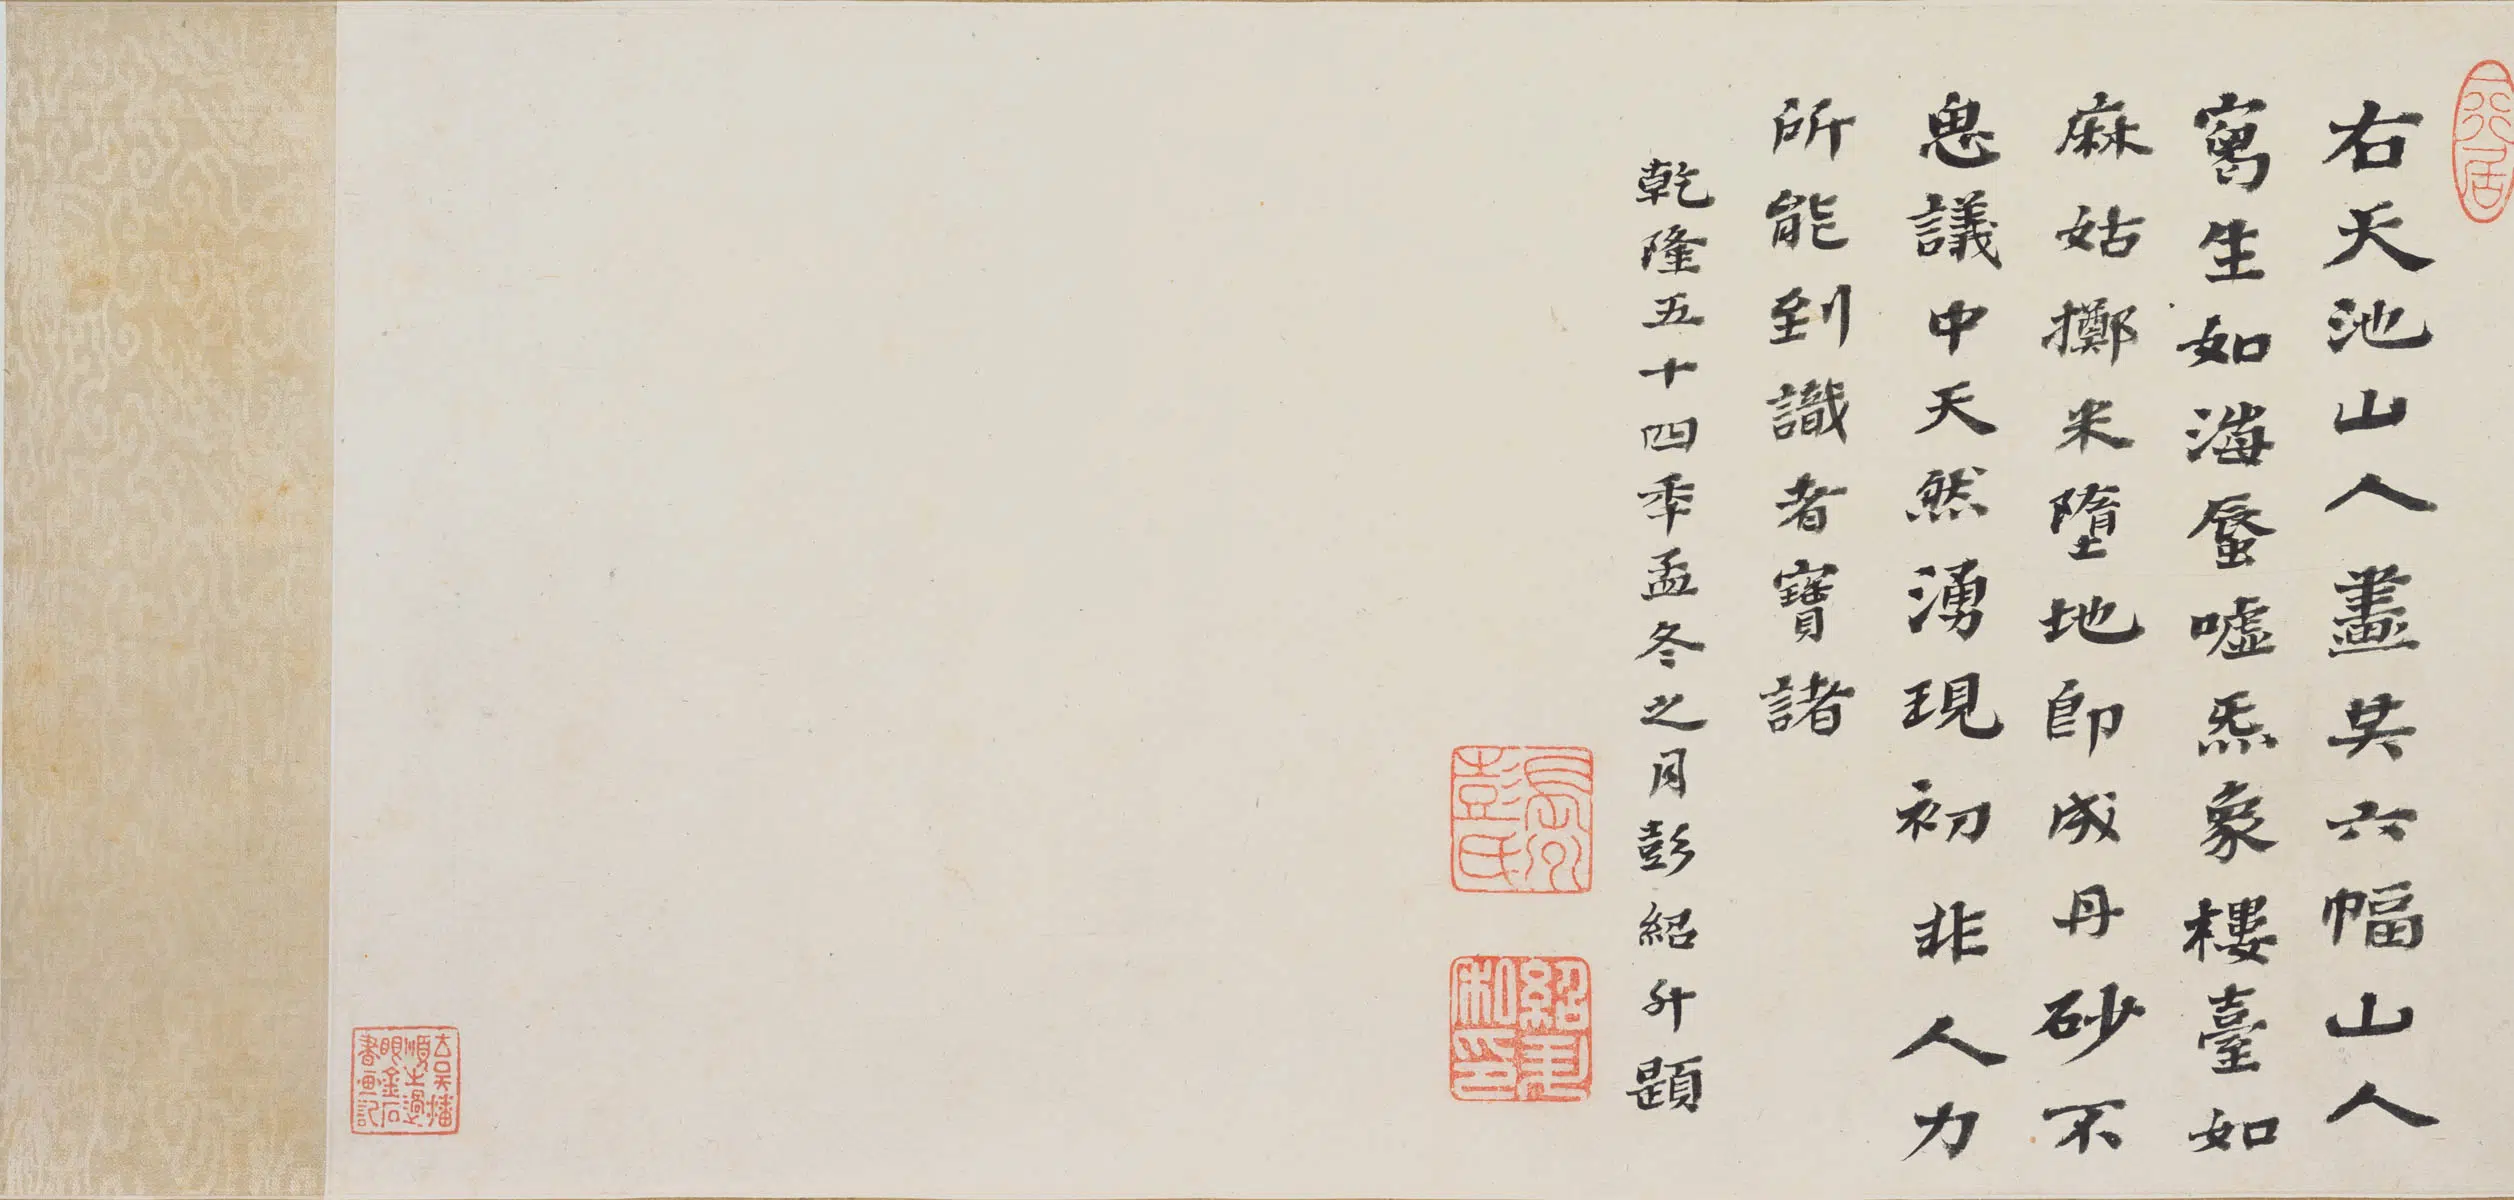 右天池山人畫共六幅山人
寫生如海蜃噓炁象樓臺如
麻姑擲米墮地即成丹砂不
思議中天然湧現初非人力
所能到識者寶諸
乾隆五十四季孟冬之月彭紹升題
彭氏
紹升私印